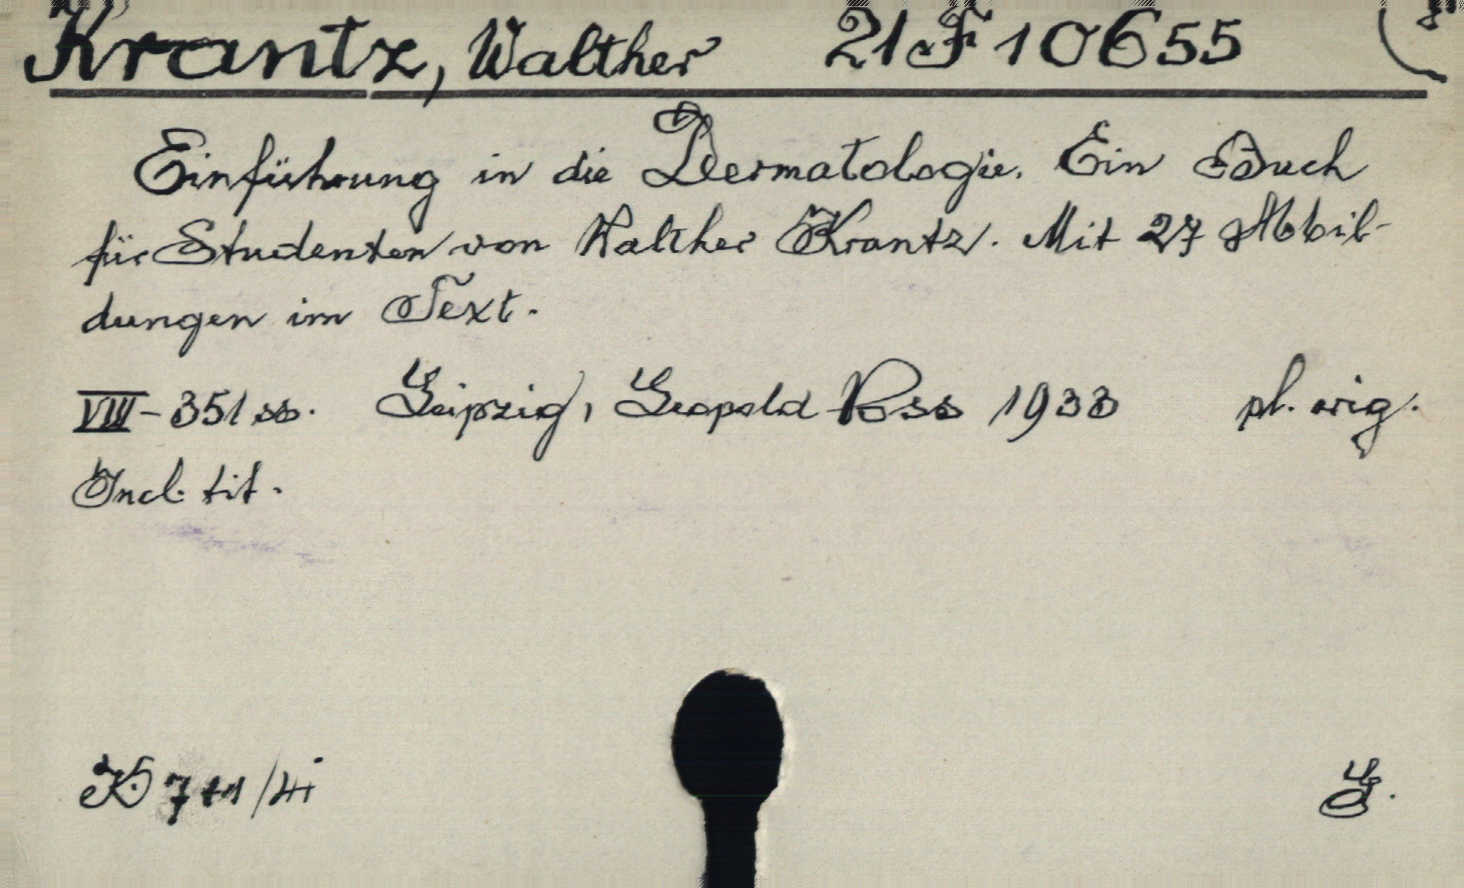 Krantz, Walther 21 F 10655
Einführung in die Dermatologie. Ein Buch
für Studenten von Walther Krantz. Mit 27 Abbil-
dungen im Text.
VIII - 351 ss. Leipzig, Leopold Voss 1933 pl. orig.
Incl. tit.